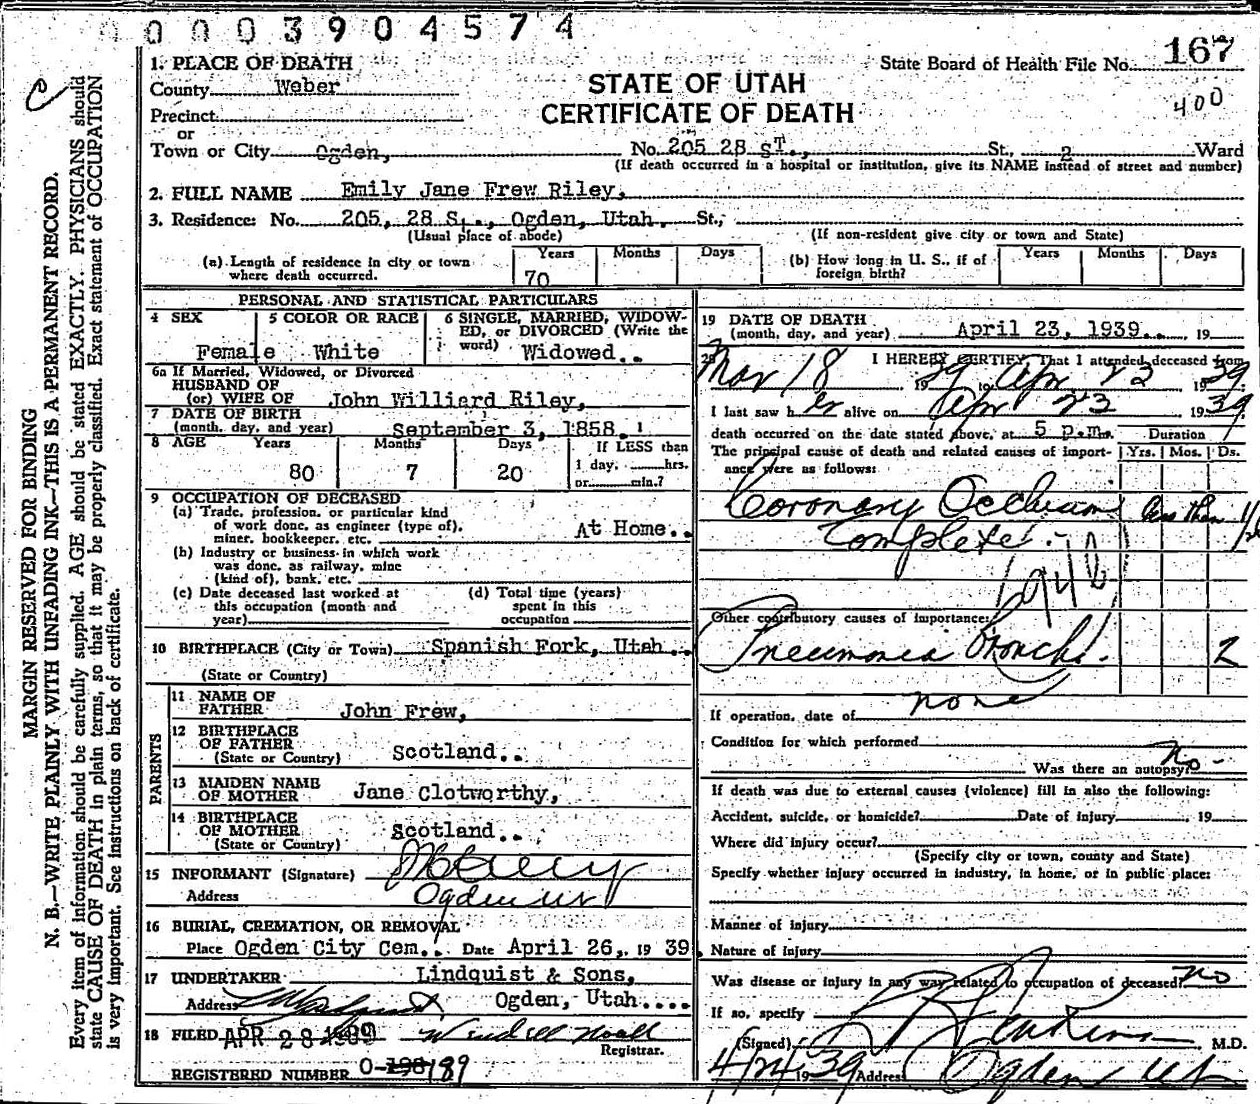 0003904574
1. PLACE OF DEATH
State Board of Health File No. 167
County Weber
STATE OF UTAH
400
Precinct
CERTIFICATE OF DEATH
or
Town or City Ogden, No. 205 28 sT., St., 2 Ward
(If death occurred in a hospital or institution, give its NAME instead of street and number)
2. FULL NAME Emily Jane Frew Riley,
3. Residence: No. 205, 28 St., Ogden, Utah, St.,
(Usual place of abode) (If non-resident give city or town and State)
(a) Length of residence in city or town where death occurred. Years 70 Months Days
(b) How long in U. S., if of foreign birth? Years Months Days
PERSONAL AND STATISTICAL PARTICULARS
4 SEX Female
5 COLOR OR RACE White
6 SINGLE, MARRIED, WIDOWED, or DIVORCED (Write the word) Widowed..
6a If Married, Widowed, or Divorced
HUSBAND OF
(or) WIFE OF John Williard Riley,
7 DATE OF BIRTH
(month, day, and year) September 3, 1858.
8 AGE Years Months Days If LESS than
80 7 20 1 day, hrs.
or min.?
9 OCCUPATION OF DECEASED
(a) Trade, profession, or particular kind
of work done, as engineer (type of),
miner, bookkeeper, etc. At Home..
(b) Industry or business in which work
was done, as railway, mine
(kind of), bank, etc.
(c) Date deceased last worked at
this occupation (month and
year)
(d) Total time (years)
spent in this
occupation
10 BIRTHPLACE (City or Town) Spanish Fork, Utah..
(State or Country)
PARENTS
11 NAME OF
FATHER John Frew,
12 BIRTHPLACE
OF FATHER
(State or Country) Scotland..
13 MAIDEN NAME
OF MOTHER Jane Clotworthy,
14 BIRTHPLACE
OF MOTHER Scotland..
(State or Country)
15 INFORMANT (Signature)
Address Ogden Ut
16 BURIAL, CREMATION, OR REMOVAL
Place Ogden City Cem.. Date April 26,. 19 39.
17 UNDERTAKER Lindquist & Sons,
Address Ogden, Utah....
18 FILED APR 28 1939 Wendell Noall
Registrar.
REGISTERED NUMBER 0-198 189
19 DATE OF DEATH
(month, day, and year) April 23, 1939.. 19
20 I HEREBY CERTIFY, That I attended deceased from
Mar 18, 1939 to Apr 23 1939
I last saw her alive on Apr 23 1939
death occurred on the date stated above, at 5 p.m. Duration
The principal cause of death and related causes of importance were as follows: Yrs. Mos. Ds.
Coronary Occlusion less than
Complete.
94b
Other contributory causes of importance:
Pneumonia Bronchi. 2
If operation, date of none
Condition for which performed
Was there an autopsy? No
If death was due to external causes (violence) fill in also the following:
Accident, suicide, or homicide? Date of injury, 19
Where did injury occur?
(Specify city or town, county and State)
Specify whether injury occurred in industry, in home, or in public place:
Manner of injury
Nature of injury
Was disease or injury in any way related to occupation of deceased? No
If so, specify
(Signed) M.D.
4/24 1939 Address Ogden Ut
MARGIN RESERVED FOR BINDING
N. B.—WRITE PLAINLY WITH UNFADING INK—THIS IS A PERMANENT RECORD.
Every item of information should be carefully supplied. AGE should be stated EXACTLY. PHYSICIANS should
state CAUSE OF DEATH in plain terms, so that it may be properly classified. Exact statement of OCCUPATION
is very important. See instructions on back of certificate.